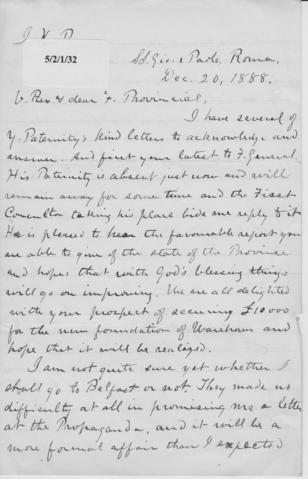 J X P
5/2/1/32
SS. Gio. e Paolo, Roma,
Dec. 20, 1888.
V. Rev. & dear F. Provincial,
I have several of
Y. Paternity's kind letters to acknowledge and
answer. And first your latest to F. General.
His Paternity is absent just now and will
remain away for some time and the First
Consultor taking his place bids me reply to it
He is pleased to hear the favourable report you
are able to give of the state of the Province
and hopes that with God's blessing things
will go on improving. We are all delighted
with your prospect of securing £10000
for the new foundation of Wareham and
hope that it will be realized.
I am not quite sure yet whether I
shall go to Belfast or not. They made no
difficulty at all in promising me a letter
at the Propaganda, and it will be a
more formal affair than I expected